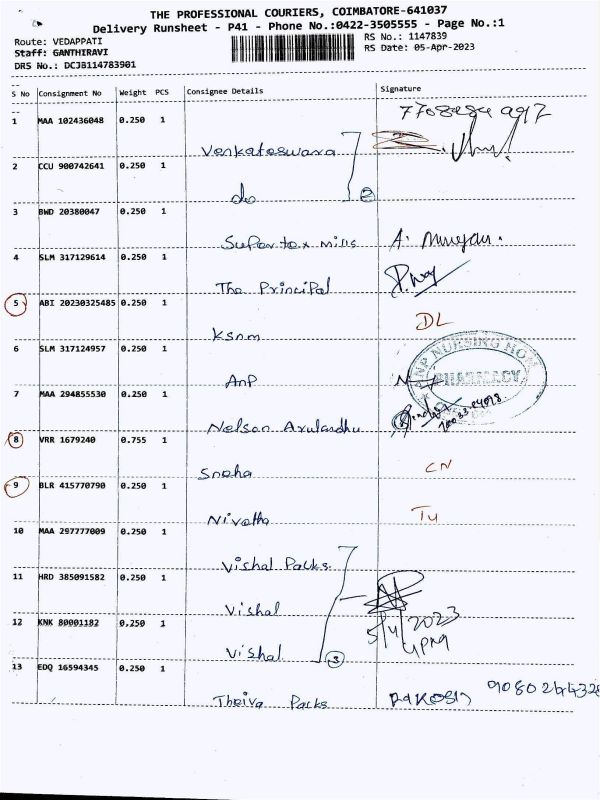 THE PROFESSIONAL COURIERS, COIMBATORE-641037
Delivery Runsheet - P41 - Phone No.:0422-3505555 - Page No.:1
Route: VEDAPPATI
Staff: GANTHIRAVI
DRS No.: DCJB114783901
RS No.: 1147839
RS Date: 05-Apr-2023
S No Consignment No Weight PCS Consignee Details Signature
1 MAA 102436048 0.250 1 Venkateswara
2 CCU 900742641 0.250 1 do 2
3 BWD 20380047 0.250 1 Supertex mills A. Murugan.
4 SLM 317129614 0.250 1 The Principal
5 ABI 20230325485 0.250 1 KSnm DL
6 SLM 317124957 0.250 1 AnP
ANP NURSING HOM
PHARMACY
7 MAA 294855530 0.250 1 Nelson
8 VRR 1679240 0.755 1 Sneha CN
9 BLR 415770790 0.250 1 Nivetha
10 MAA 297777009 0.250 1 Vishal Packs
11 HRD 385091582 0.250 1 Vishal
5/4/2023
4PM
12 KNK 80001182 0.250 1 Vishal 3
13 EDQ 16594345 0.250 1 Theiva Packs